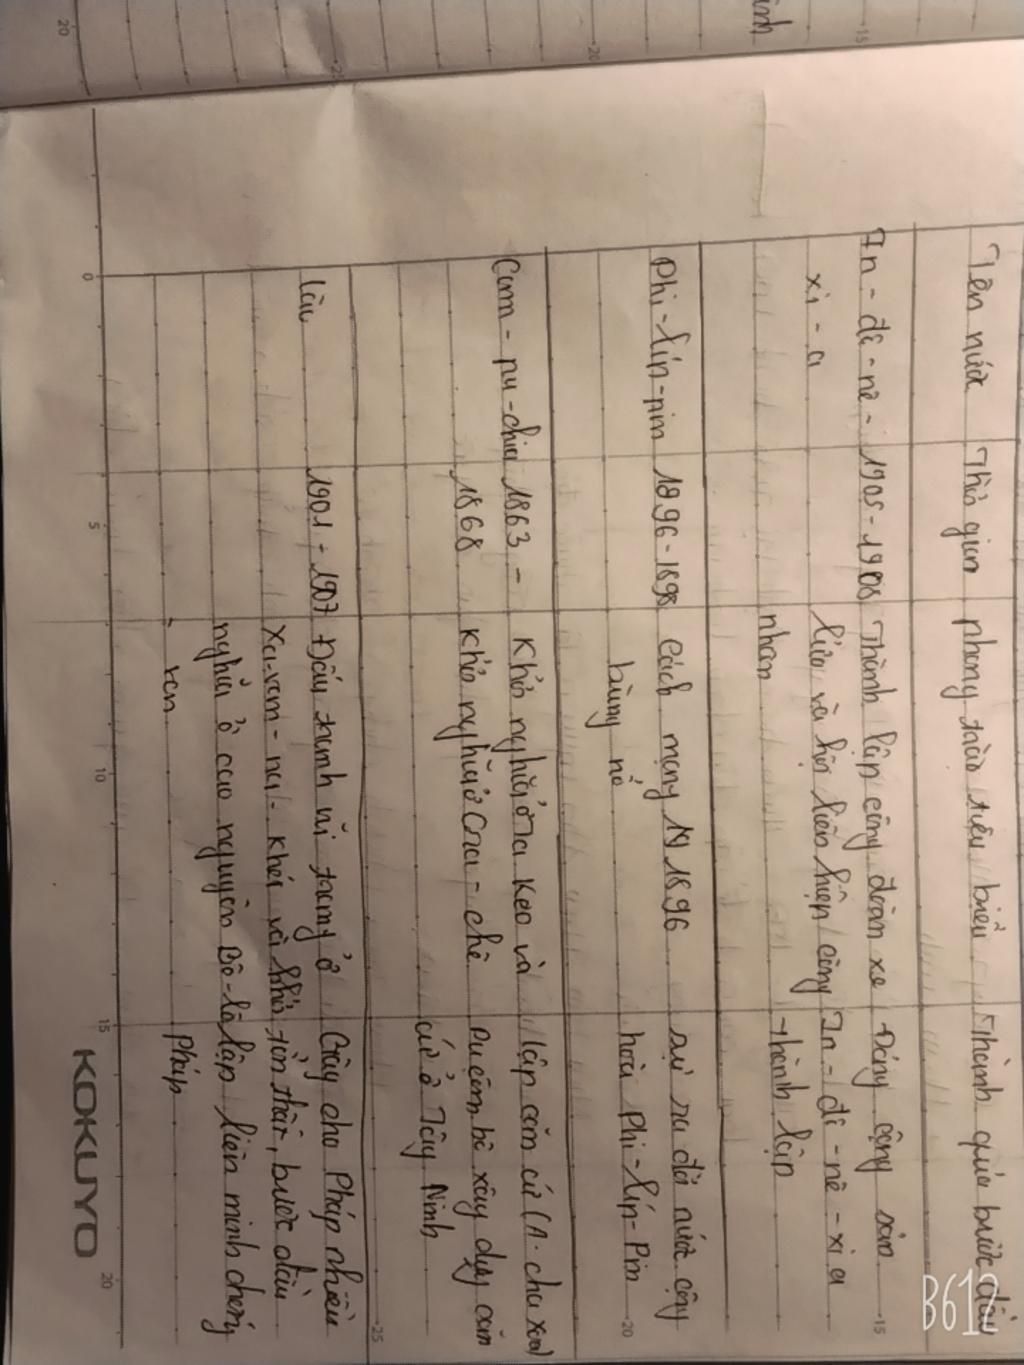 Tên nước Thời gian phong trào tiêu biểu Thành quả bước đầu
In - đô - nê - 1905 - 1908 Thành lập công đoàn xe Đảng cộng sản
xi - a lửa và hội liên hiệp công In - đô - nê - xi a
nhân thành lập
Phi - líp - pin 1896 - 1898 Cách mạng 19 1896 sự ra đời nước cộng
bùng nổ hoà Phi - líp - Pin
Cam - pu - chia 1863 - Khởi nghĩa ở Ta Keo và lập căn cứ (A. cha xoa)
1868 khởi nghĩa ở Cra - chê Pu côm bô xây dựng căn
cứ ở Tây Ninh
Lào 1901 - 1907 Đấu tranh vũ trang ở Gây cho Pháp nhiều
Xa-van-na-khét và khởi tổn thất, bước đầu
nghĩa ở cao nguyên Bô-lô lập liên minh chống
ven Pháp
KOKUYO
0 5 10 15 20
15
20
25
B612